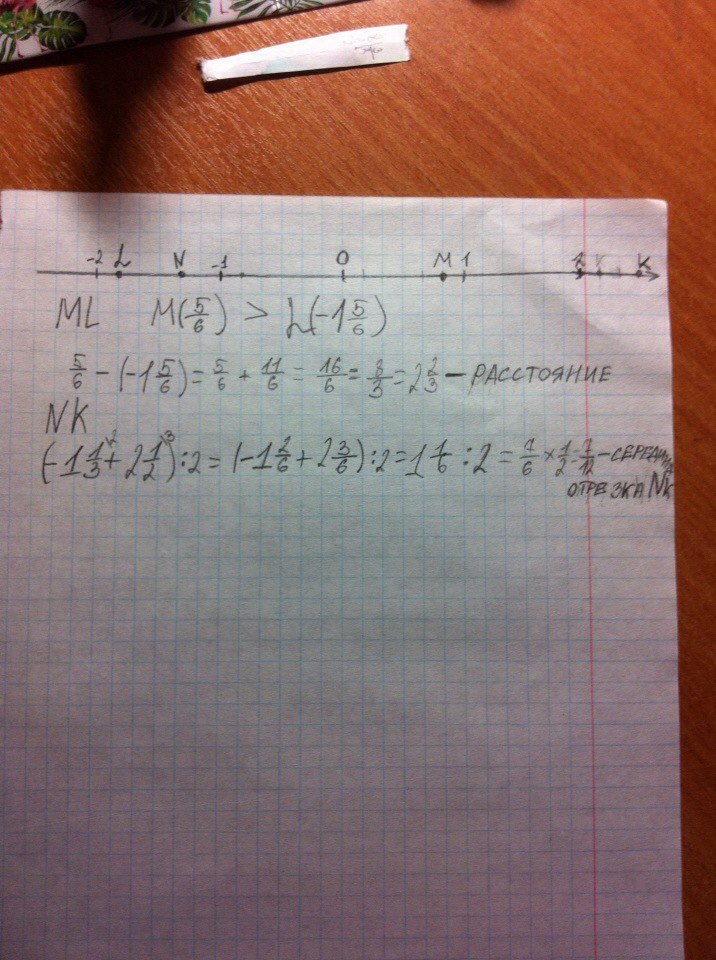 -2 L N -1 0 M 1 2 K
ML M(5/6) > L(-1 5/6)
5/6 - (-1 5/6) = 5/6 + 11/6 = 16/6 = 8/3 = 2 2/3 - РАССТОЯНИЕ
NK
(-1 1/3 + 2 1/2) : 2 = (-1 2/6 + 2 3/6) : 2 = 1 1/6 : 2 = 7/6 × 1/2 = 7/12 - СЕРЕДИНА
ОТРЕЗКА NK